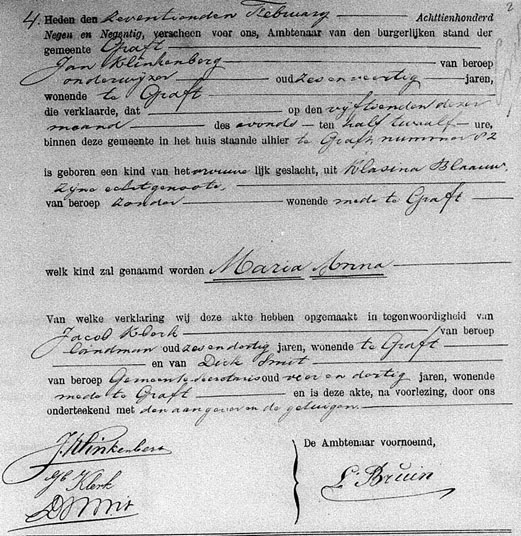 4. Heden den zeventienden Februarij Achttienhonderd
Negen en Negentig, verscheen voor ons, Ambtenaar van den burgerlijken stand der
gemeente Graft
Jan Klinkenberg van beroep
onderwijzer oud zes en veertig jaren,
wonende te Graft
die verklaarde, dat op den vijftienden dezer
maand des avonds ten half twaalf ure,
binnen deze gemeente in het huis staande alhier te Graft nummer 82
is geboren een kind van het vrouwelijk geslacht, uit Klasina Blaauw,
zijne echtgenoote,
van beroep zonder wonende mede te Graft
welk kind zal genaamd worden Maria Anna
Van welke verklaring wij deze akte hebben opgemaakt in tegenwoordigheid van
Jacob Klerk van beroep
landman oud zes en dertig jaren, wonende te Graft
en van Dirk Smit
van beroep Gemeentesecretaris oud vier en dertig jaren, wonende
mede te Graft en is deze akte, na voorlezing, door ons
onderteekend met den aangever en de getuigen.
J Klinkenberg
Jb Klerk
D Smit
De Ambtenaar voornoemd,
C Bruin